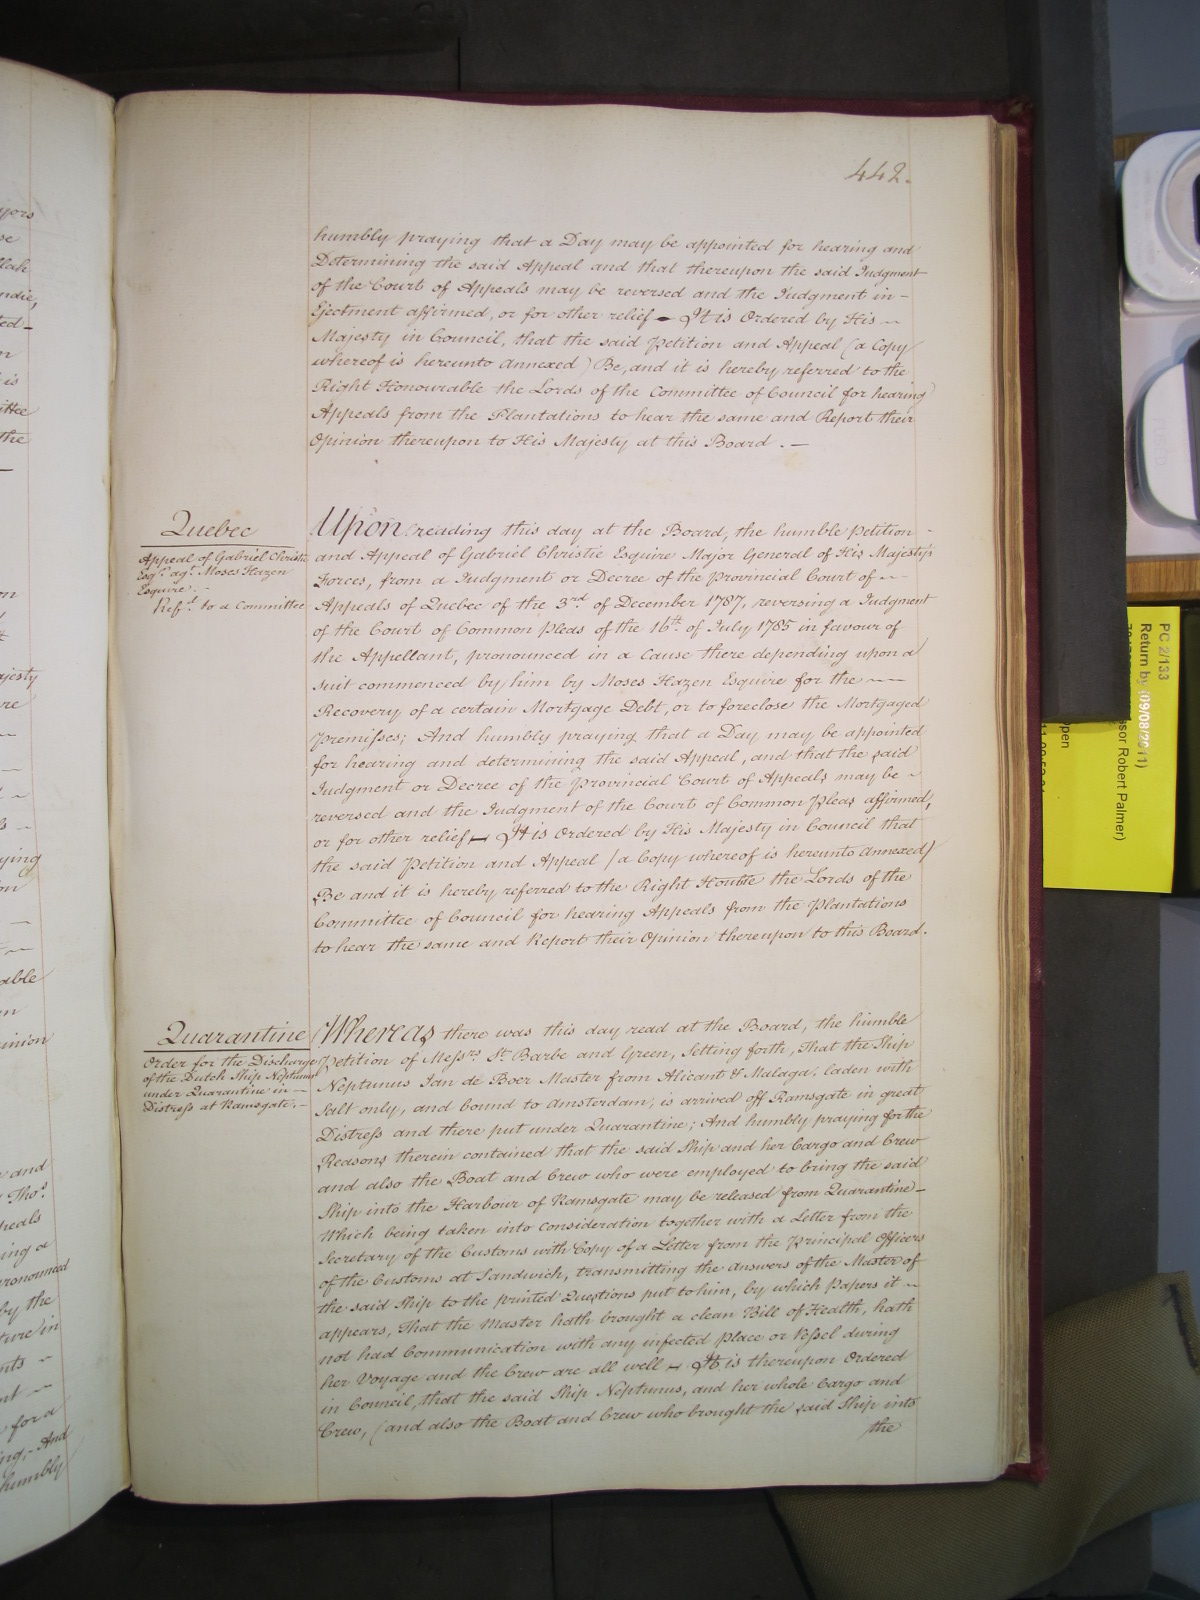 442.
humbly praying that a Day may be appointed for hearing and
Determining the said Appeal and that thereupon the said Judgment
of the Court of Appeals may be reversed and the Judgment in -
Ejectment affirmed, or for other relief - It is Ordered by His ~
Majesty in Council, that the said Petition and Appeal (a Copy
whereof is hereunto Annexed) Be, and it is hereby referred to the
Right Honourable the Lords of the Committee of Council for hearing
Appeals from the Plantations to hear the same and Report their
Opinion thereupon to His Majesty at this Board. -
Quebec
Appeal of Gabriel Christie
Esqr. agt. Moses Hazen
Esquire. -
Refd. to a Committee
Upon reading this day at the Board, the humble Petition -
and Appeal of Gabriel Christie Esquire Major General of His Majesty's
Forces, from a Judgment or Decree of the Provincial Court of ~
Appeals of Quebec of the 3rd of December 1787, reversing a Judgment
of the Court of Common Pleas of the 16th. of July 1785 in favour of
the Appellant, pronounced in a Cause there depending upon a
suit commenced by him by Moses Hazen Esquire for the ~~
Recovery of a certain Mortgage Debt, or to foreclose the Mortgaged
Premisses; And humbly praying that a Day may be appointed
for hearing and determining the said Appeal, and that the said
Judgment or Decree of the Provincial Court of Appeals may be ~
reversed and the Judgment of the Court of Common Pleas affirmed,
or for other relief - It is Ordered by His Majesty in Council that
the said Petition and Appeal (a Copy whereof is hereunto Annexed)
Be and it is hereby referred to the Right Honble the Lords of the
Committee of Council for hearing Appeals from the Plantations
to hear the same and Report their Opinion thereupon to this Board.
Quarantine
Order for the Discharge
of the Dutch Ship Neptunus
under Quarantine in -
Distress at Ramsgate. -
Whereas there was this day read at the Board, the humble
Petition of Messrs. St. Barbe and Green, Setting forth, That the Ship
Neptunus Jan de Boer Master from Alicant & Malaga, laden with
Salt only, and bound to Amsterdam, is arrived off Ramsgate in great
Distress and there put under Quarantine; And humbly praying for the
Reasons therein contained that the said Ship and her Cargo and Crew
and also the Boat and Crew who were employed to bring the said
Ship into the Harbour of Ramsgate may be released from Quarantine -
Which being taken into Consideration together with a Letter from the
Secretary of the Customs with Copy of a Letter from the Principal Officers
of the Customs at Sandwich, transmitting the answers of the Master of
the said Ship to the printed Questions put to him, by which Papers it ~
appears, That the Master hath brought a clean Bill of Health, hath
not had Communication with any infected Place or Vessel during
her Voyage and the Crew are all well - It is thereupon Ordered
in Council, that the said Ship Neptunus, and her whole Cargo and
Crew, (and also the Boat and Crew who brought the said Ship into
the
PC 2/133
Return by (09/08/2011)
Robert Palmer)